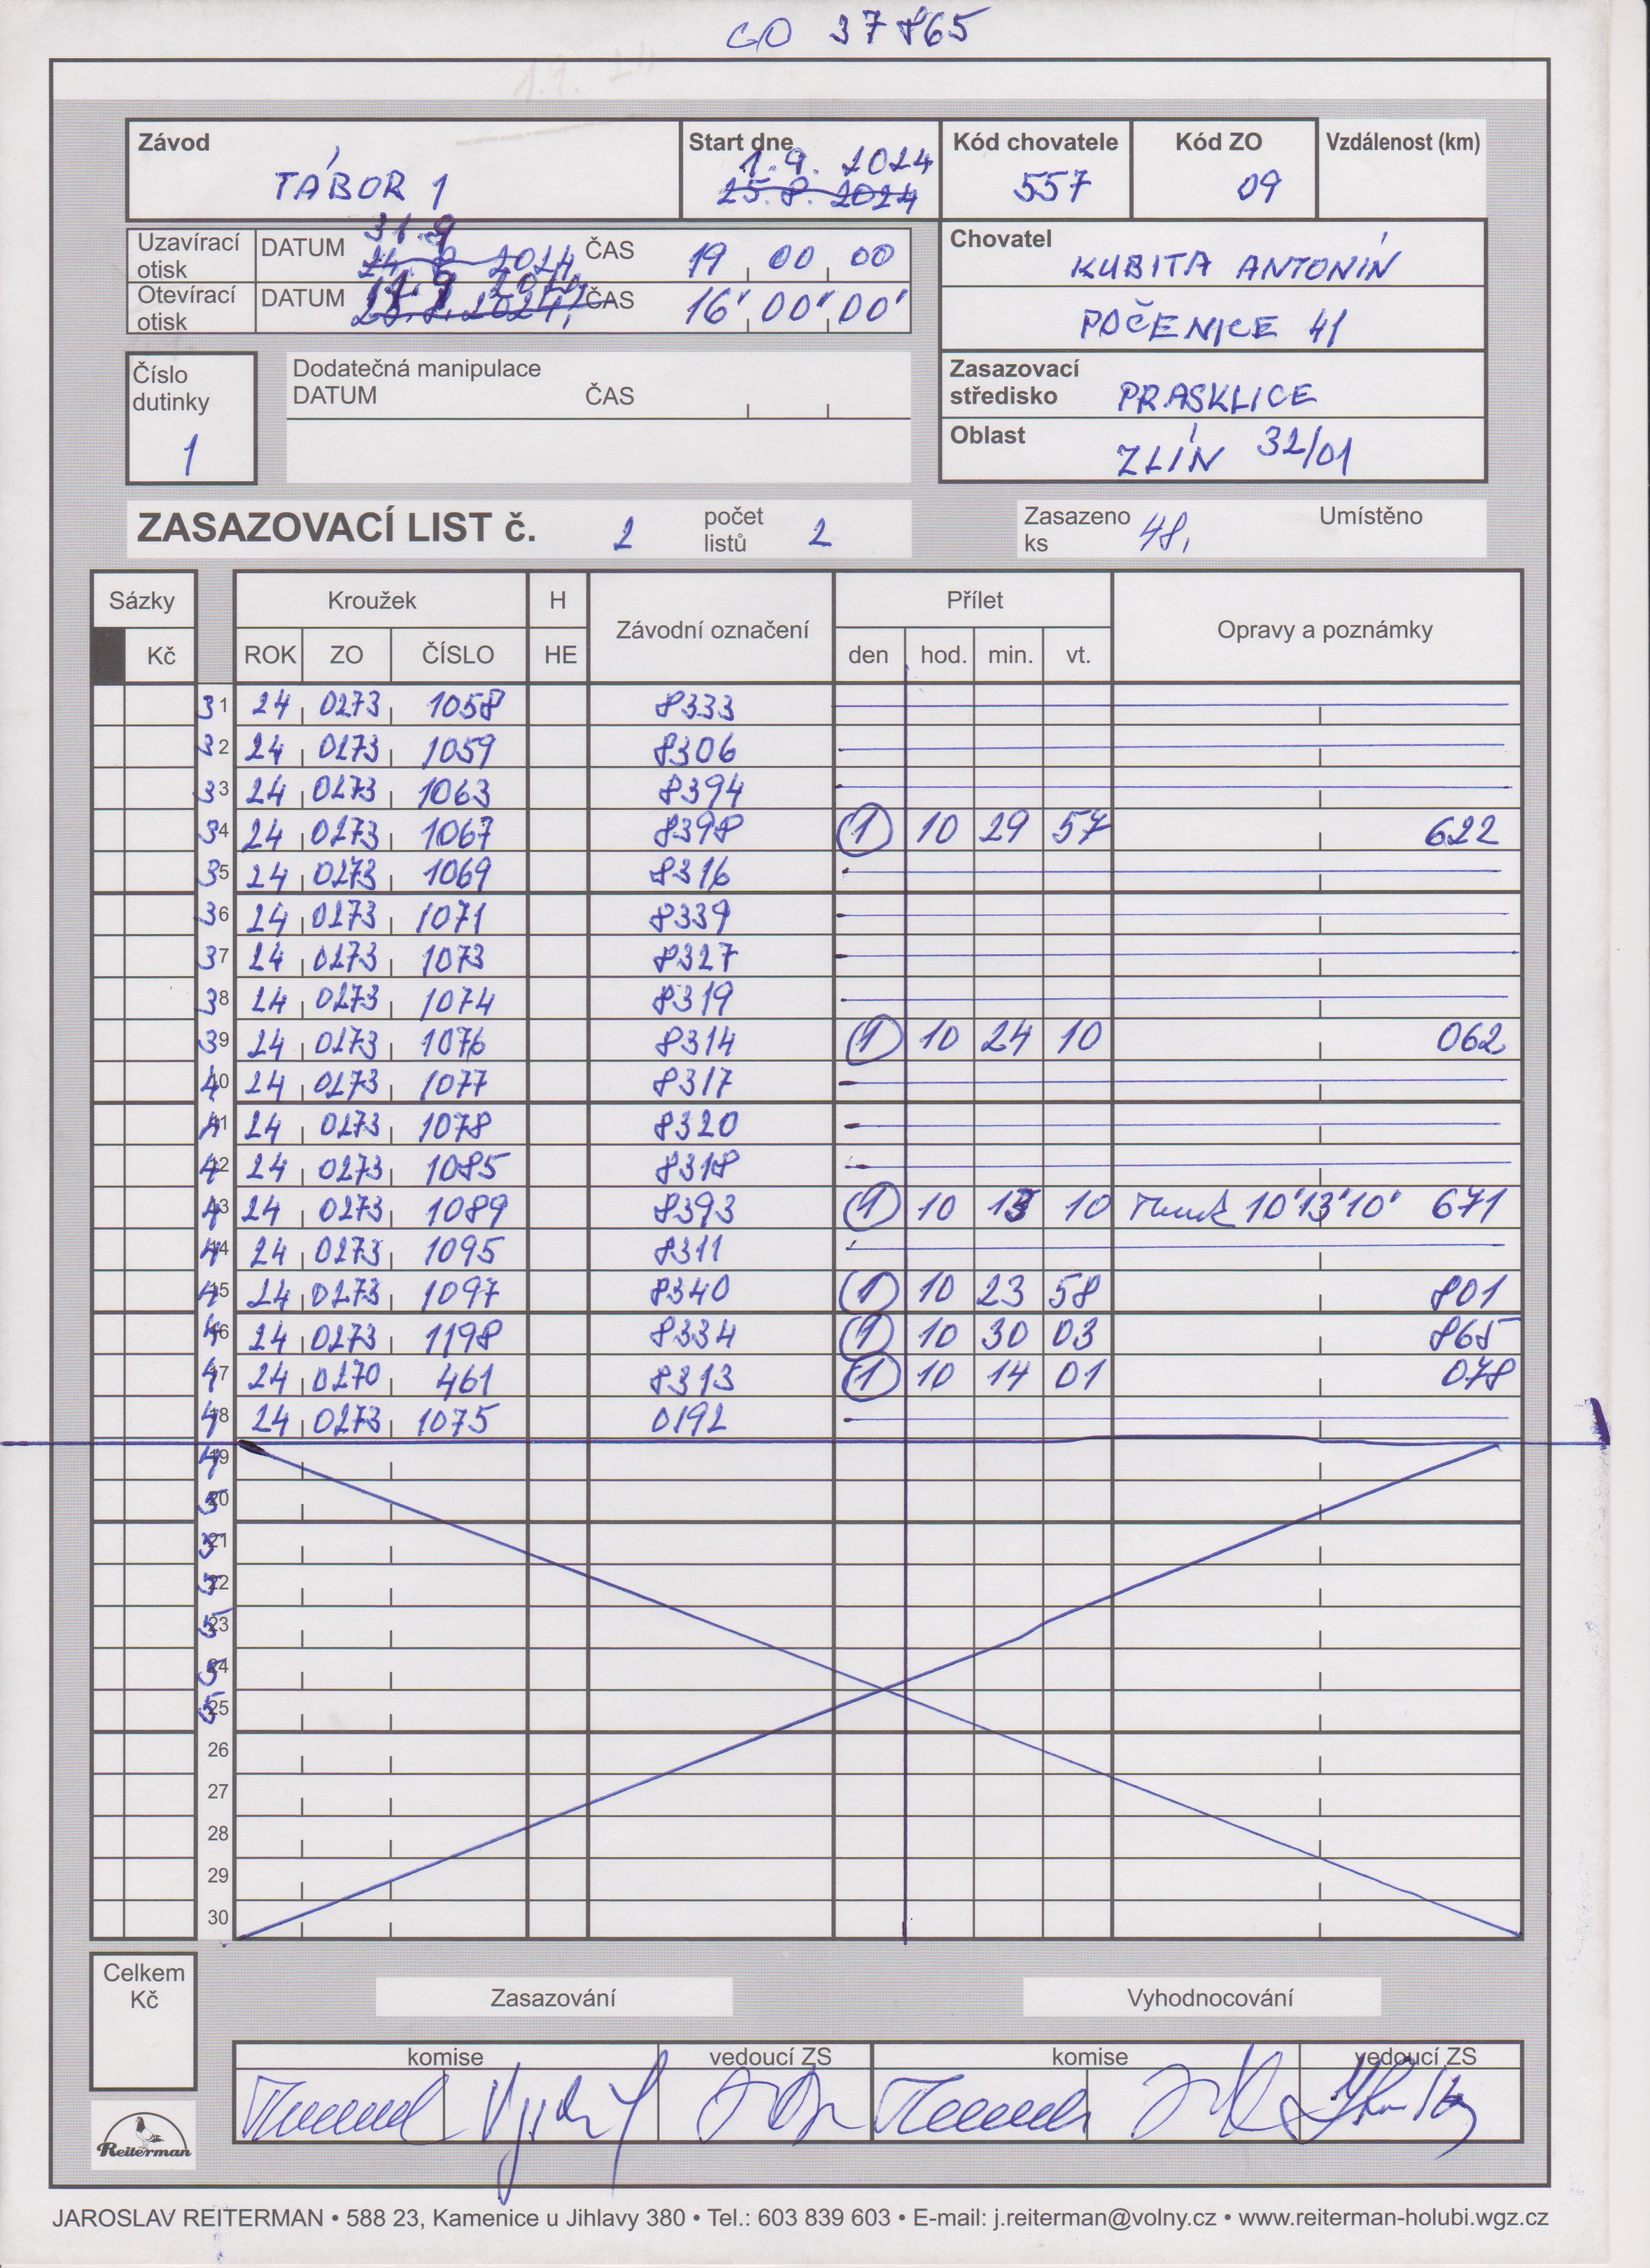 GO 37865
1.9. 24
Závod
Start dne
Kód chovatele
Kód ZO
Vzdálenost (km)
TÁBOR 1
1.9. 2024
25.8. 2024
557
09
Uzavírací otisk DATUM 31.9 24.8 2024, ČAS 19 00 00
Otevírací otisk DATUM 1.9 2024 ČAS 16' 00' 00'
Chovatel
KUBITA ANTONÍN
POČENICE 41
Číslo dutinky
1
Dodatečná manipulace
DATUM ČAS
Zasazovací středisko PRASKLICE
Oblast ZLÍN 32/01
ZASAZOVACÍ LIST č. 2 počet listů 2
Zasazeno ks 48, Umístěno
Sázky Kroužek H Závodní označení Přílet Opravy a poznámky
Kč ROK ZO ČÍSLO HE den hod. min. vt.
31 24 0273 1058 8333
32 24 0273 1059 8306
33 24 0273 1063 8394
34 24 0273 1067 8398 1 10 29 57 622
35 24 0273 1069 8316
36 24 0273 1071 8339
37 24 0273 1073 8327
38 24 0273 1074 8319
39 24 0273 1076 8314 1 10 24 10 062
40 24 0273 1077 8317
41 24 0273 1078 8320
42 24 0273 1085 8318
43 24 0273 1089 8393 1 10 13 10 10'13'10' 671
44 24 0273 1095 8311
45 24 0273 1097 8340 1 10 23 58 801
46 24 0273 1198 8334 1 10 30 03 865
47 24 0270 461 8313 1 10 14 01 078
48 24 0273 1075 0192
49
50
51
52
53
54
55
26
27
28
29
30
Celkem Kč
Zasazování
Vyhodnocování
komise vedoucí ZS komise vedoucí ZS
Reiterman
JAROSLAV REITERMAN • 588 23, Kamenice u Jihlavy 380 • Tel.: 603 839 603 • E-mail: j.reiterman@volny.cz • www.reiterman-holubi.wgz.cz